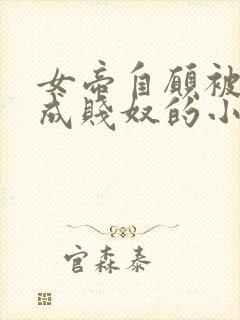 女帝自愿被
成贱奴的小
官森泰